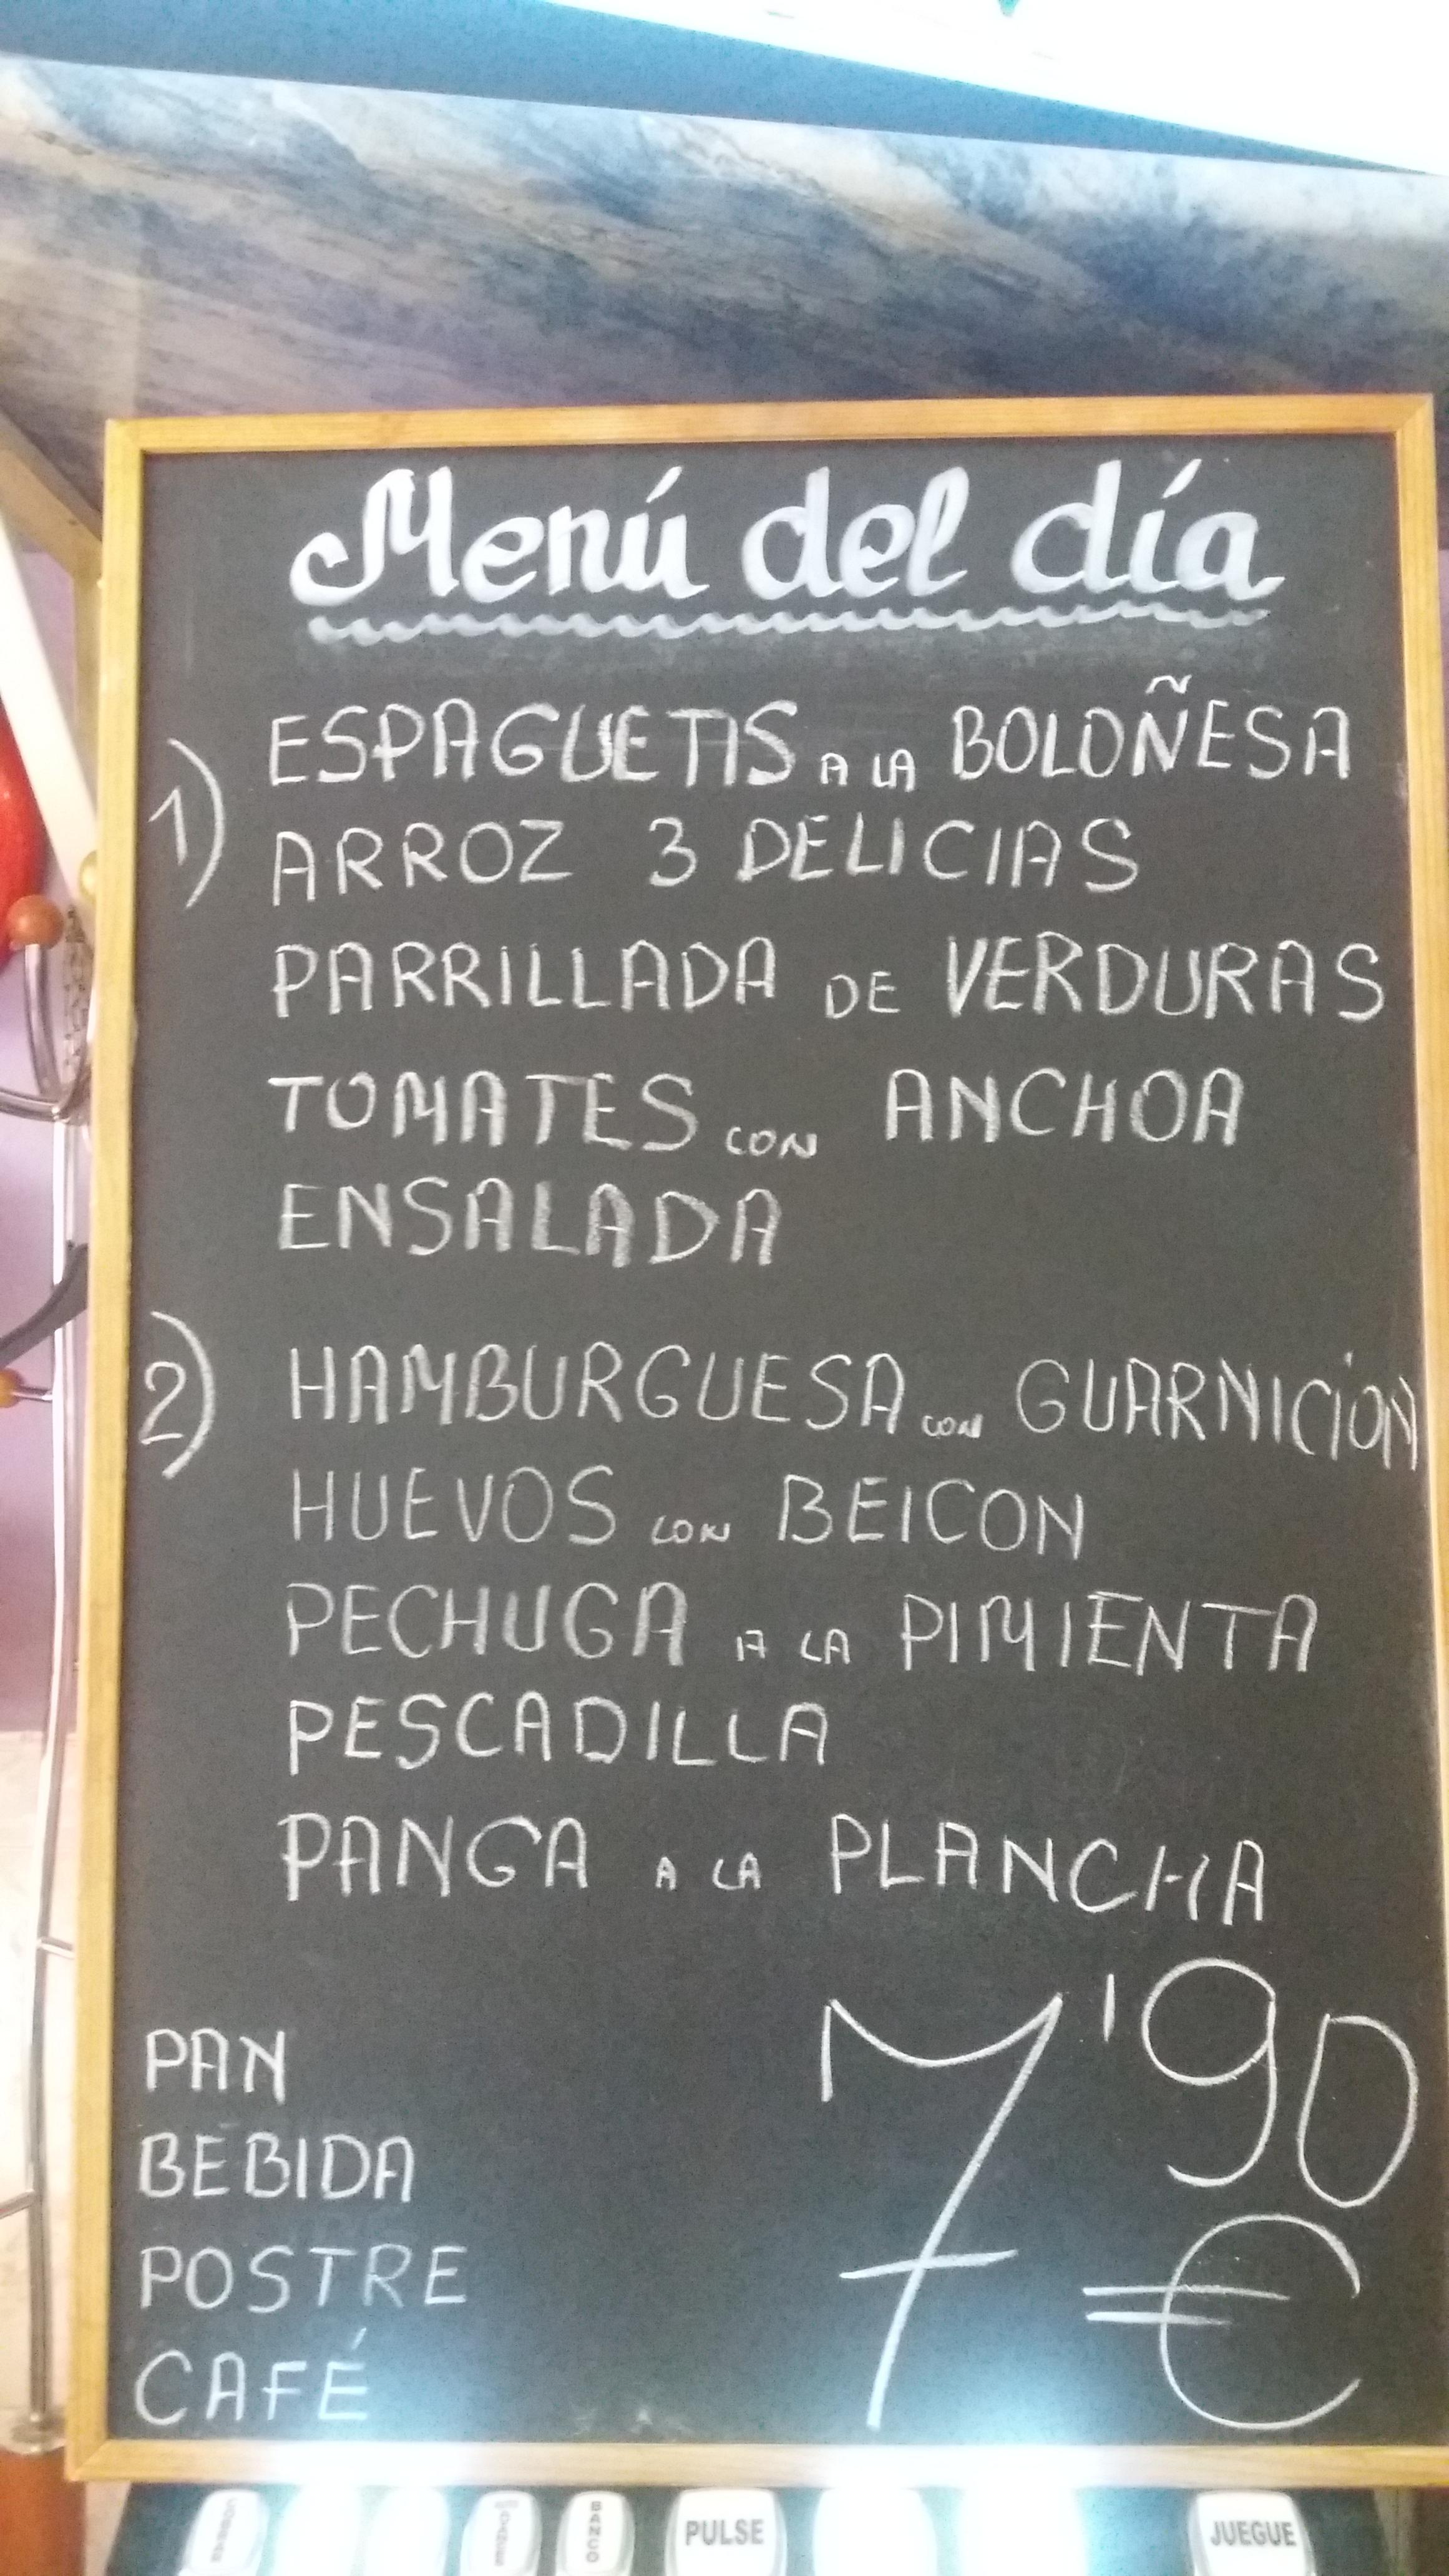 Menú del día
1) ESPAGUETIS A LA BOLOÑESA
ARROZ 3 DELICIAS
PARRILLADA DE VERDURAS
TOMATES CON ANCHOA
ENSALADA
2) HAMBURGUESA CON GUARNICIÓN
HUEVOS CON BEICON
PECHUGA A LA PIMIENTA
PESCADILLA
PANGA A LA PLANCHA
PAN
BEBIDA
POSTRE
CAFÉ
7'90 €
BANCO
PULSE
JUEGUE